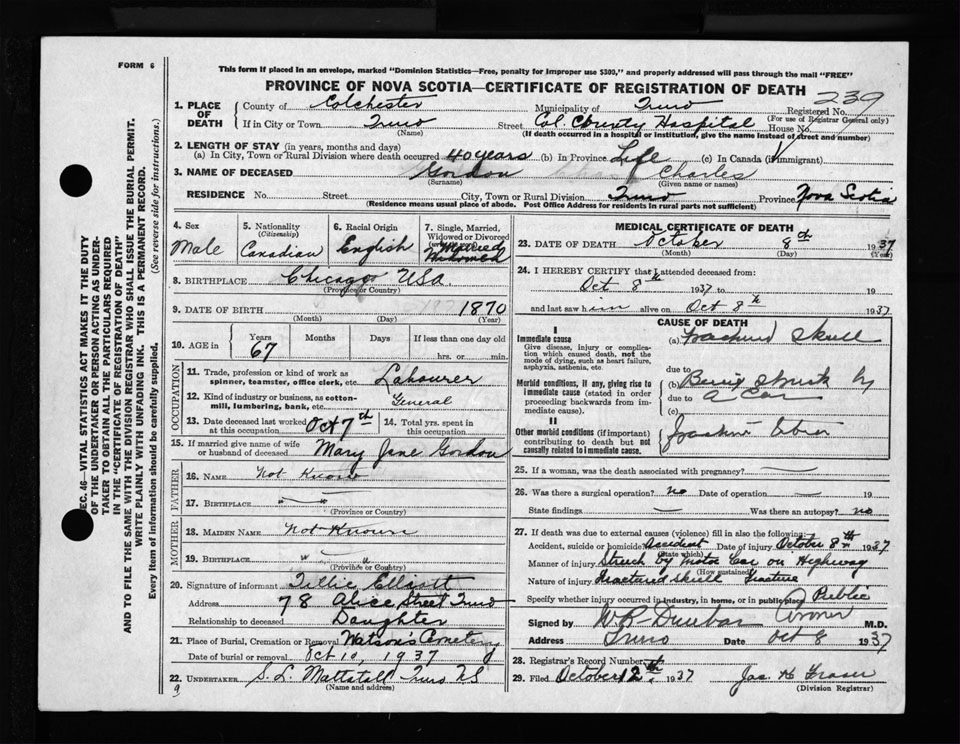 FORM 6
This form if placed in an envelope, marked "Dominion Statistics—Free, penalty for improper use $300," and properly addressed will pass through the mail "FREE"
PROVINCE OF NOVA SCOTIA—CERTIFICATE OF REGISTRATION OF DEATH
SEC. 46—VITAL STATISTICS ACT MAKES IT THE DUTY
OF THE UNDERTAKER OR PERSON ACTING AS UNDER-
TAKER TO OBTAIN ALL THE PARTICULARS REQUIRED
IN THE "CERTIFICATE OF REGISTRATION OF DEATH"
AND TO FILE THE SAME WITH THE DIVISION REGISTRAR WHO SHALL ISSUE THE BURIAL PERMIT.
WRITE PLAINLY WITH UNFADING INK. THIS IS A PERMANENT RECORD.
Every item of information should be carefully supplied. (See reverse side for instructions.)
1. PLACE OF DEATH
County of Colchester Municipality of Truro Registered No. 239
(For use of Registrar General only)
If in City or Town Truro Street Col. County Hospital House No.
(Name) (If death occurred in a hospital or institution, give the name instead of street and number)
2. LENGTH OF STAY (in years, months and days)
(a) In City, Town or Rural Division where death occurred 40 years (b) In Province Life (c) In Canada (if immigrant)
3. NAME OF DECEASED Gordon Charles
(Surname) (Given name or names)
RESIDENCE No. Street City, Town or Rural Division Truro Province Nova Scotia
(Residence means usual place of abode. Post Office Address for residents in rural parts not sufficient)
4. Sex Male
5. Nationality (Citizenship) Canadian
6. Racial Origin English
7. Single, Married, Widowed or Divorced
8. BIRTHPLACE Chicago USA
(Province or Country)
9. DATE OF BIRTH 1870
(Month) (Day) (Year)
10. AGE in Years Months Days If less than one day old
67 hrs. or min.
OCCUPATION
11. Trade, profession or kind of work as spinner, teamster, office clerk, etc. Labourer
12. Kind of industry or business, as cotton-mill, lumbering, bank, etc. General
13. Date deceased last worked at this occupation Oct 7th
14. Total yrs. spent in this occupation
15. If married give name of wife or husband of deceased Mary Jane Gordon
FATHER
16. NAME Not Known
17. BIRTHPLACE " "
(Province or Country)
MOTHER
18. MAIDEN NAME Not Known
19. BIRTHPLACE " "
(Province or Country)
20. Signature of informant Tillie Elliott
Address 78 Alice Street Truro
Relationship to deceased Daughter
21. Place of Burial, Cremation or Removal Watson's Cemetery
Date of burial or removal Oct 10, 1937
22. UNDERTAKER S. L. Mattatall Truro N.S
(Name and address)
9
MEDICAL CERTIFICATE OF DEATH
23. DATE OF DEATH October 8th 1937
(Month) (Day) (Year)
24. I HEREBY CERTIFY that I attended deceased from:
Oct 8th 1937 to 19
and last saw him alive on Oct 8th 1937
CAUSE OF DEATH
I
Immediate cause
Give disease, injury or complication which caused death, not the mode of dying, such as heart failure, asphyxia, asthenia, etc.
(a) Fractured Skull
due to
Morbid conditions, if any, giving rise to immediate cause (stated in order proceeding backwards from immediate cause).
(b) Being Struck by
due to a Car
(c)
II
Other morbid conditions (if important) contributing to death but not causally related to immediate cause.
25. If a woman, was the death associated with pregnancy?
26. Was there a surgical operation? no Date of operation 19
State findings Was there an autopsy? no
27. If death was due to external causes (violence) fill in also the following:—
Accident, suicide or homicide? Accident Date of injury October 8th 1937
(State which)
Manner of injury Struck by motor Car on Highway
(How sustained)
Nature of injury fractured skull
Specify whether injury occurred in industry, in home, or in public place Public
Signed by W R Dunbar Coroner M.D.
Address Truro Date Oct 8 1937
28. Registrar's Record Number
29. Filed October 12th 1937 Jas H Fraser
(Division Registrar)